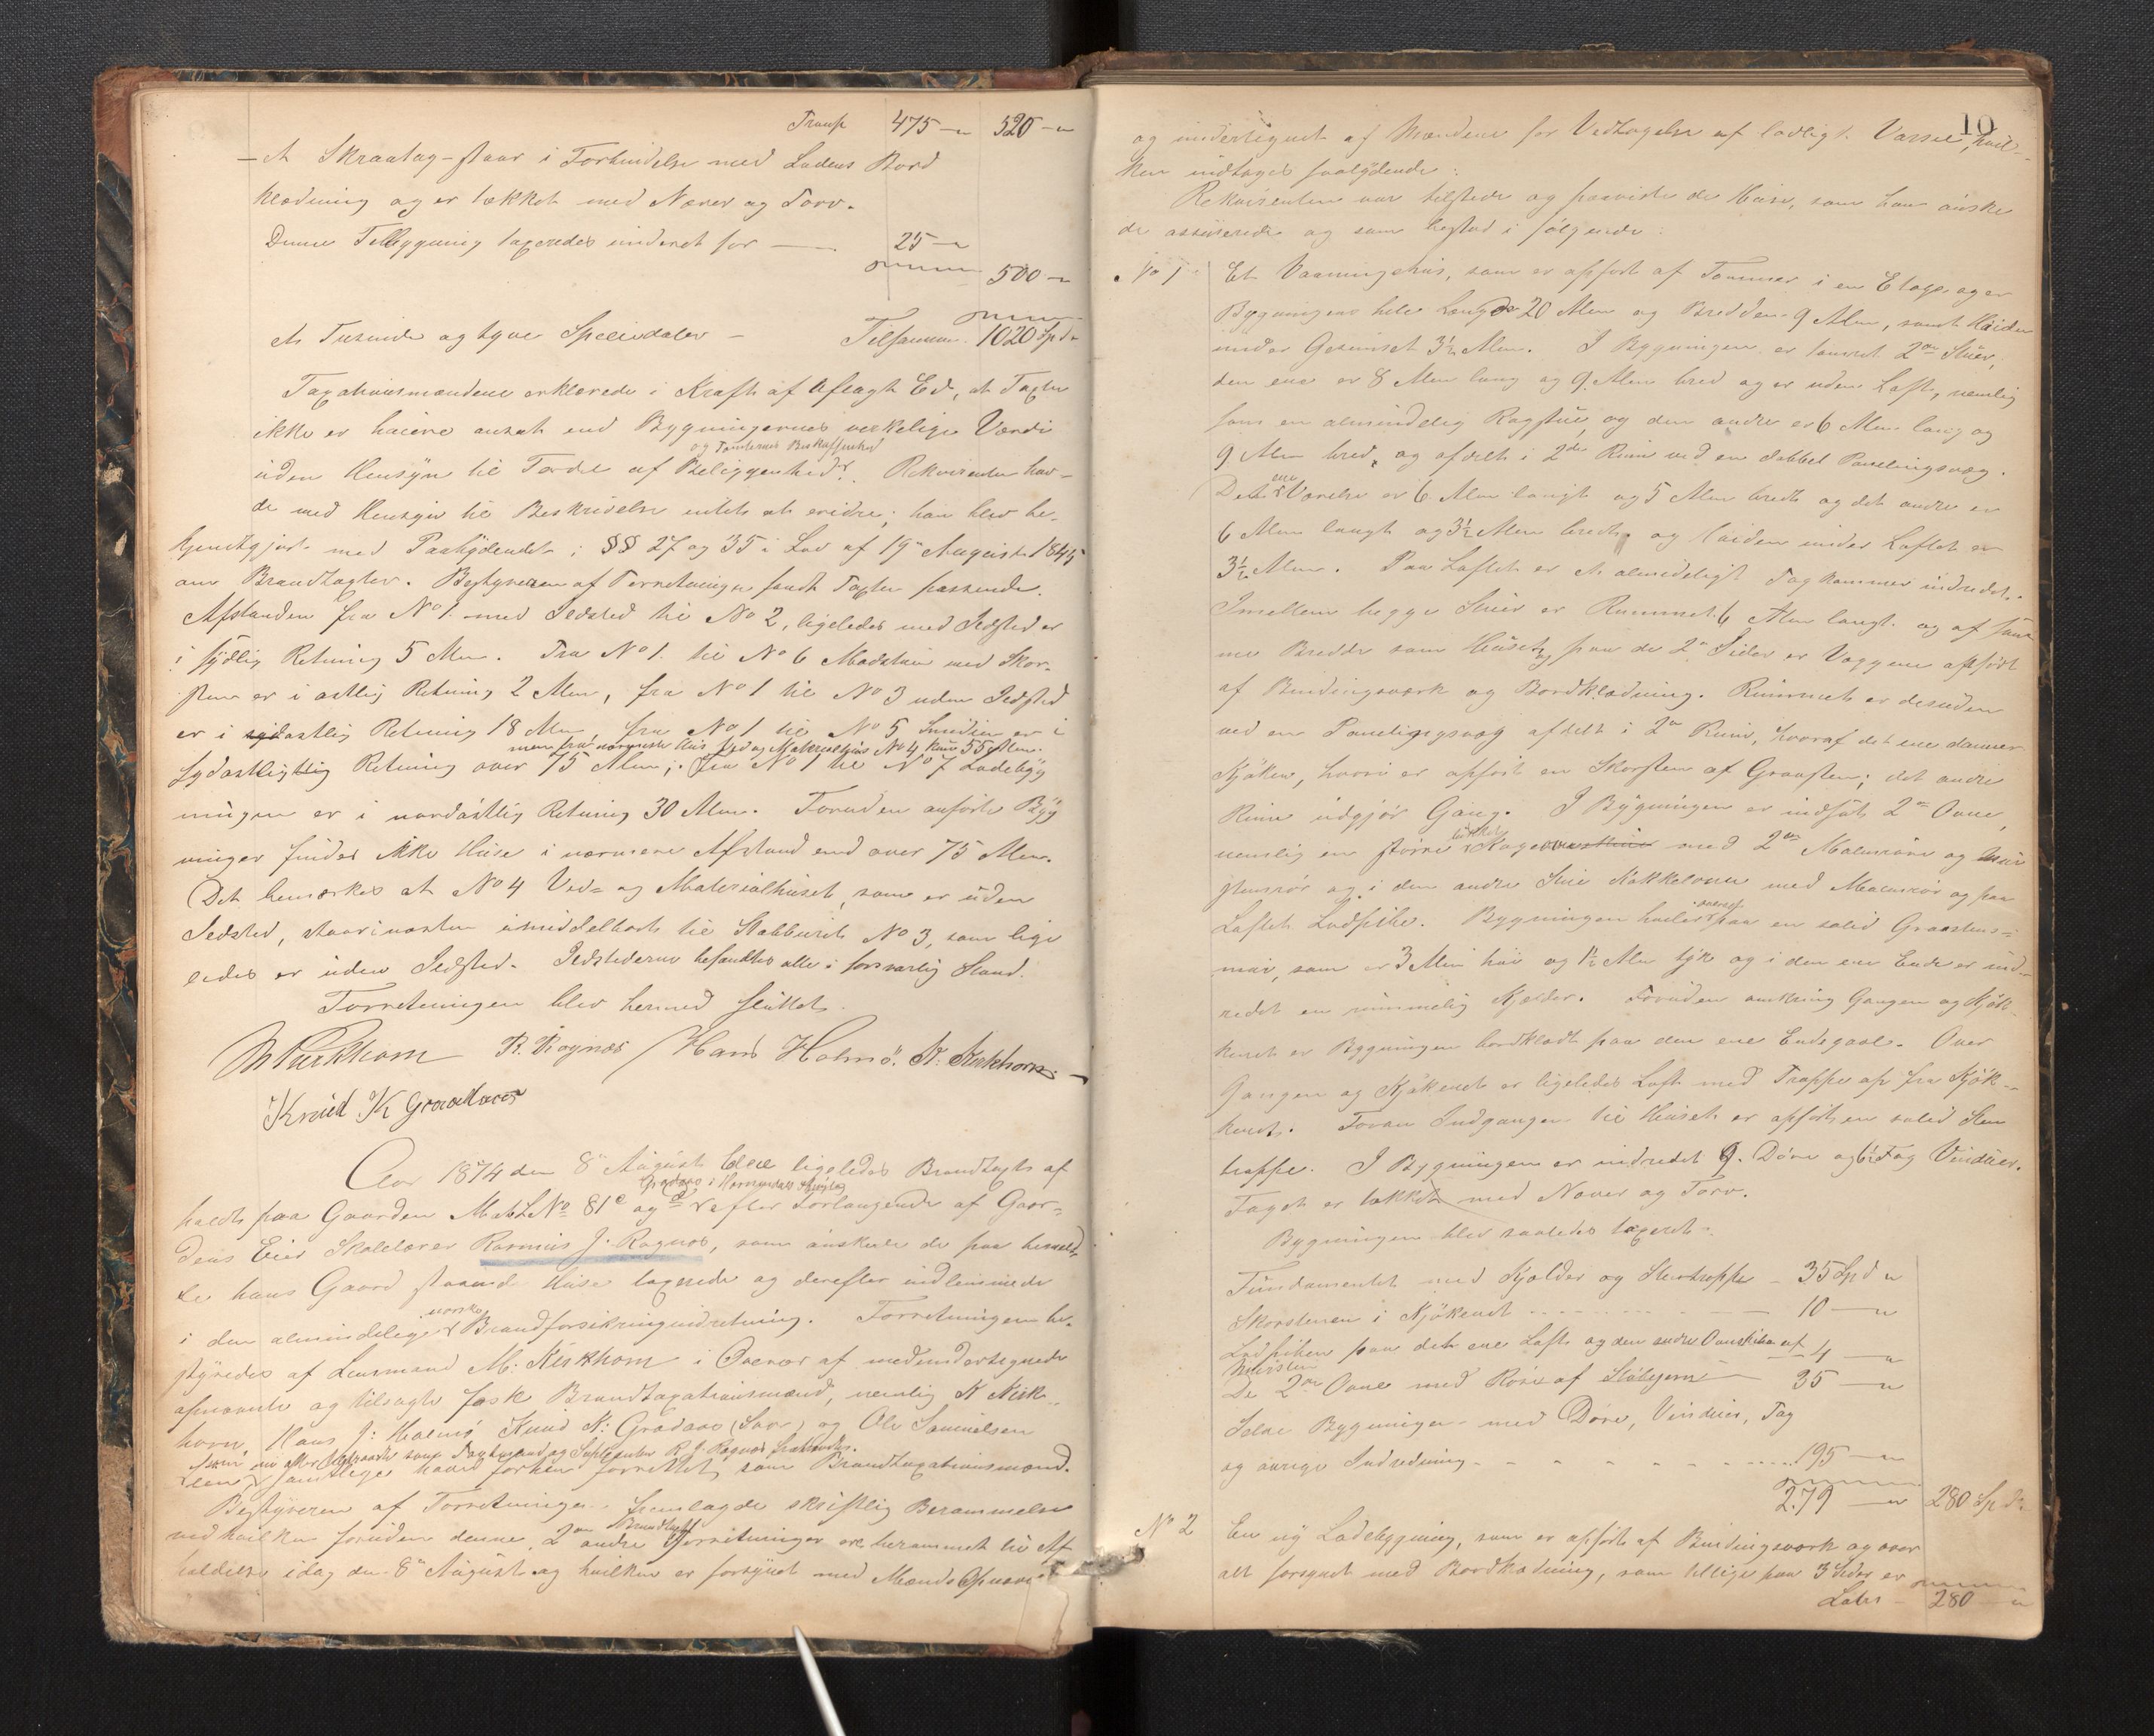 Transp 475 — " 520 — "
— et Skraatag - staar i Forbindelse med Ladens Bord
klædning og er tækket med Næver og Torv.
Denne Tilbygning taxeredes underet for — 25 — "
500 — "
et Tusinde og tyve Speciedaler — Tilsammen 1020 Spd "
Taxationsmændene erklærede i Kraft af aflagt Ed, at Taxten
ikke er høiere ansat end Bygningernes verkelige Værdi
og Tomternes Beskaffenhed
uden Hensyn til Fordel af Beliggenhed. Rekvirenten hav-
de med Hensyn til Beskrivelse intet at erindre; han blev be-
kjendtgjort med Paabydendet i §§ 27 og 35 i Lov af 19de August 1845
om Brandtaxter. Bestyreren af Forretningen fandt Taxten passende.
Afstanden fra No 1 med Ildsted til No 2, ligeledes med Ildsted er
i sydlig Retning 5 Alen. Fra No 1 til No 6 Madstue med Skor-
sten er i østlig Retning 2 Alen, fra No 1 til No 3 uden Ildsted
er i sydøstlig Retning 18 Alen fra No 1 til No 5 Smidien er i
men fra nærmeste Huus Ved og Materialhuus No 4 kun 55 Alen.
sydøstlig Retning over 75 Alen; fra No 1 til No 7 Ladebyg
ningen er i nordøstlig Retning 30 Alen. Foruden anførte Byg
ninger findes ikke Huse i nærmere Afstand end over 75 Alen.
Det bemærkes at No 4 Ved- og Materialhuset, som er uden
Ildsted, staar næsten umiddelbart til Stabburet No 3, som lige
ledes er uden Ildsted. Ildstederne befandtes alle i forsvarlig Stand.
Forretningen blev hermed sluttet.
M Kirkhorn R. Rognæs Hans Holmø. N. Kirkhorn.
Knud K Graadans
Aar 1874 den 8de August blev ligeledes Brandtaxt af
holdt paa Gaarden Matr LNo 81c og d efter Forlangende af Gaar-
dens Eier Skolelærer Rasmus J. Rognæs, som ønskede de paa bemeld-
te hans Gaard staaende Huse taxerede og derefter indlemmede
norske
i den almindelige Brandforsikringsindretning. Forretningen be-
styredes af Lensmand M. Kirkhorn i Overvær af medundertegnede
opnævnte og tilsagte fast Brandtaxationsmænd, nemlig N Kirk-
horn, Hans J. Holmø Knud K. Gradaas (Saer) og Ole Samuelsen
Leen, samtlige have forhen forrettet som Brandtaxationsmænd.
Bestyreren af Forretningen fremlagde skriftlig Berammelse
Brandtaxt
ved hvilken foruden denne, 2de andre forretninger ere berammet til Af
holdelse idag den 8de August og hvilken er forsynet med Mænds Opnævnelse
10
og undertegnet af Mændene for Vedtagelse af lovligt Varsel, hvil-
ken indtages saalydende:
Rekvirenten var tilstede og paaviste de Huse, som han ønske
de assurerede og som bestod i følgende:
No 1 Et Vaaningshus, som er opført af Tømmer i en Etage og er
Bygningens hele Længde 20 Alen og Bredden 9 Alen, samt Høiden
under Gesimset 3½ Alen. I Bygningen er tømret 2de Stuer,
den ene er 8 Alen lang og 9 Alen bred og er uden Loft, nemlig
som en almindelig Røgstue, og den anden er 6 Alen lang og
9 Alen bred, og afdelt i 2de Rum ved en dobbel Panelingsvæg.
ene
Det Værelse er 6 Alen langt og 5 Alen bredt og det andre er
6 Alen langt og 3½ Alen bredt og høiden under Loftet er
3½ Alen. Paa Loftet er et almindeligt Tagkammer indredet.
Imellem begge Stuer er Rummet 6 Alen langt og af sam
me Bredde som Huset, og paa de 2de Sider er Væggene opført
af Bindingsværk og Bordklædning. Rummet er desuden
ved en Panelingsvæg afdelt i 2de Rum, hvoraf det ene danner
Kjøken, hvori er opført en Skorsten af Graasten; det andre
Rum udgjør Gang. I Bygningen er indsat 2de Ovne,
nemlig en større med 2de Malmrøre og Mur
stensrør og i den anden Stue Kakkelovn med Malmrør og paa
overalt
Loftet Ludpibe. Bygningen hviler paa en solid Graastens-
mur, som er 3 Alen høi og 1½ Alen tyk og i den ene Ende er ind-
redet en rummelig Kjælder. Foruden omkring Gangen og Kjøk-
kenet er Bygningen bordklædt paa den ene Endegavl. Over
Gangen og Kjøkenet er ligeledes Loft med Trappe op fra Kjøk-
kenet. Foran Indgangen til Huset er opført en solid Sten
trappe. I Bygningen er indredet 9 Døre og 6½ Fag Vinduer.
Taget er tækket med Næver og Torv.
Bygningen blev saaledes taxeret:
Fundamentet med Kjælder og Stentrappe — 35 Spd "
Skorstenen i Kjøkenet — 10 — "
Ludpiben paa det ene Loft og den andre af — 4 — "
Mursten
De 2de Ovne med Rører af Støbejern — 35 — "
Selve Bygningen med Døre, Vinduer, Tag
og øvrige Indredning — 195 — "
279 — " 280 Spd "
No 2 En ny Ladebygning, som er opført af Bindingsværk og over
alt forsynet med Bordklædning, som tillige paa 3 Sider er
Lates — 280 — "